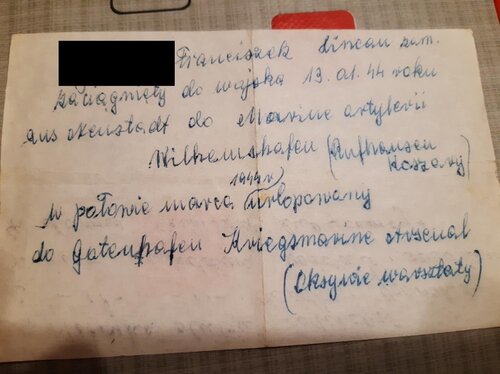 Franciszek Lincau zam.
zaciągnięty do wojska 13.01.44 roku
aus Neustadt do Marine artylerii
Wilhemshafen (Rufhausen Koszary)
1944 r.
w połowie marca urlopowany
do Gotenhafen Kriegsmarine Arsenal
(Oksywie warsztaty)